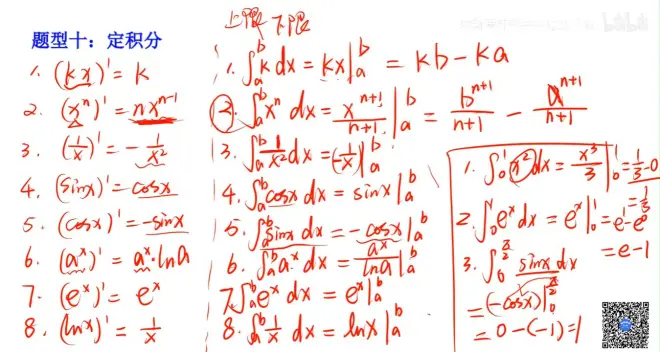 上限 下限
题型十：定积分
1. (kx)' = k
2. (x^n)' = nx^{n-1}
3. (1/x)' = -1/x²
4. (sinx)' = cosx
5. (cosx)' = -sinx
6. (a^x)' = a^x·lna
7. (e^x)' = e^x
8. (lnx)' = 1/x
1. ∫_a^b k dx = kx|_a^b = kb - ka
2. ∫_a^b x^n dx = x^{n+1}/(n+1)|_a^b = b^{n+1}/(n+1) - a^{n+1}/(n+1)
3. ∫_a^b 1/x² dx = (-1/x)|_a^b
4. ∫_a^b cosx dx = sinx|_a^b
5. ∫_a^b sinx dx = -cosx|_a^b
6. ∫_a^b a^x dx = a^x/lna|_a^b
7. ∫_a^b e^x dx = e^x|_a^b
8. ∫_a^b 1/x dx = lnx|_a^b
1. ∫_0^1 x² dx = x³/3|_0^1 = 1/3 - 0
= 1/3
2. ∫_0^1 e^x dx = e^x|_0^1 = e^1 - e^0
= e - 1
3. ∫_0^{π/2} sinx dx
= (-cosx)|_0^{π/2}
= 0 - (-1) = 1